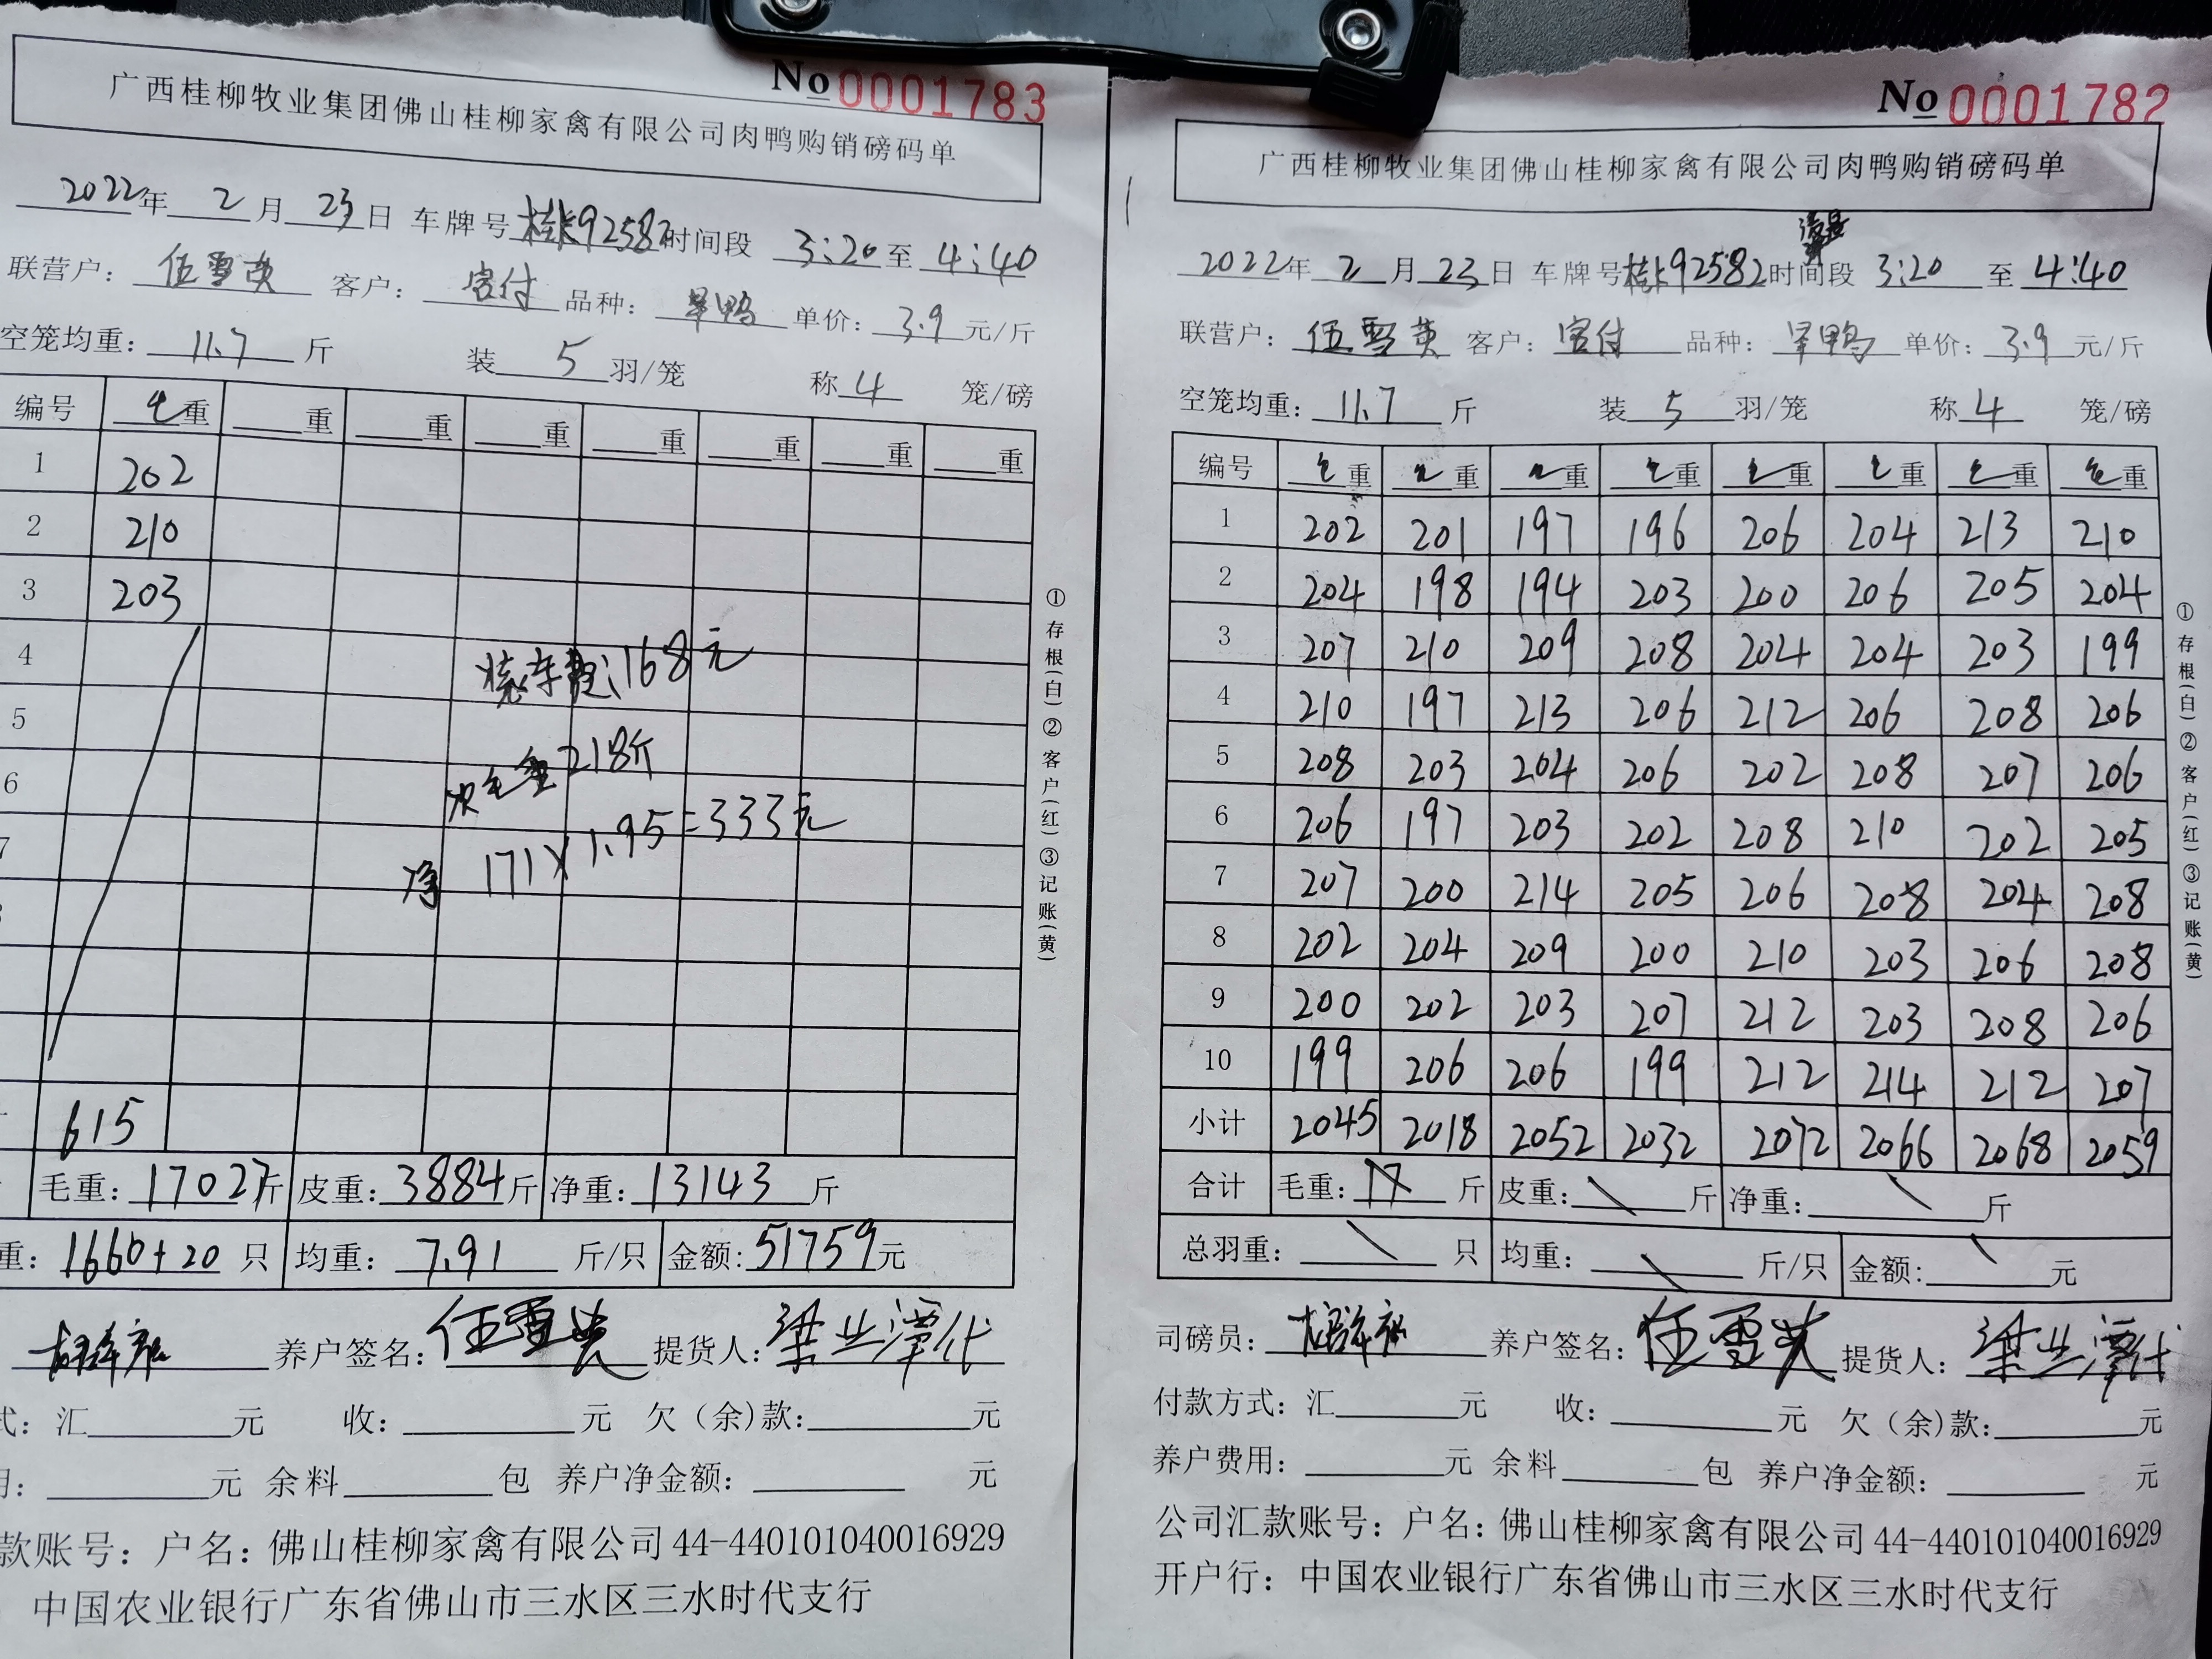 No 0001783
广西桂柳牧业集团佛山桂柳家禽有限公司肉鸭购销磅码单
2022年 2 月 23 日 车牌号 桂K92582 时间段 3:20 至 4:40
联营户: 伍雪英 客户: 客付 品种: 旱鸭 单价: 3.9 元/斤
空笼均重: 11.7 斤 装 5 羽/笼 称 4 笼/磅
编号 毛重 重 重 重 重 重 重 重
1 202
2 210
3 203
4
5
6
7
烧车费:168元
次毛重218斤
净 171×1.95=333元
615
毛重: 17027斤 皮重: 3884斤 净重: 13143 斤
重: 1660+20 只 均重: 7.91 斤/只 金额: 51759元
养户签名: 伍雪英 提货人: 梁业潭代
式: 汇 元 收: 元 欠（余)款: 元
用: 元 余料 包 养户净金额: 元
款账号: 户名: 佛山桂柳家禽有限公司 44-440101040016929
中国农业银行广东省佛山市三水区三水时代支行
①存根(白)②客户(红)③记账(黄)
No 0001782
广西桂柳牧业集团佛山桂柳家禽有限公司肉鸭购销磅码单
2022年 2 月 23 日 车牌号 桂K92582 时间段 3:20 至 4:40
联营户: 伍雪英 客户: 客付 品种: 旱鸭 单价: 3.9 元/斤
空笼均重: 11.7 斤 装 5 羽/笼 称 4 笼/磅
编号 毛重 毛重 毛重 毛重 毛重 毛重 毛重 毛重
1 202 201 197 196 206 204 213 210
2 204 198 194 203 200 206 205 204
3 207 210 209 208 204 204 203 199
4 210 197 213 206 212 206 208 206
5 208 203 204 206 202 208 207 206
6 206 197 203 202 208 210 202 205
7 207 200 214 205 206 208 204 208
8 202 204 209 200 210 203 206 208
9 200 202 203 207 212 203 208 206
10 199 206 206 199 212 214 212 207
小计 2045 2018 2052 2032 2072 2066 2068 2059
合计 毛重: 斤 皮重: 斤 净重: 斤
总羽重: 只 均重: 斤/只 金额: 元
司磅员: 养户签名: 伍雪英 提货人: 梁业潭代
付款方式: 汇 元 收: 元 欠（余)款: 元
养户费用: 元 余料 包 养户净金额: 元
公司汇款账号: 户名: 佛山桂柳家禽有限公司 44-440101040016929
开户行: 中国农业银行广东省佛山市三水区三水时代支行
①存根(白)②客户(红)③记账(黄)